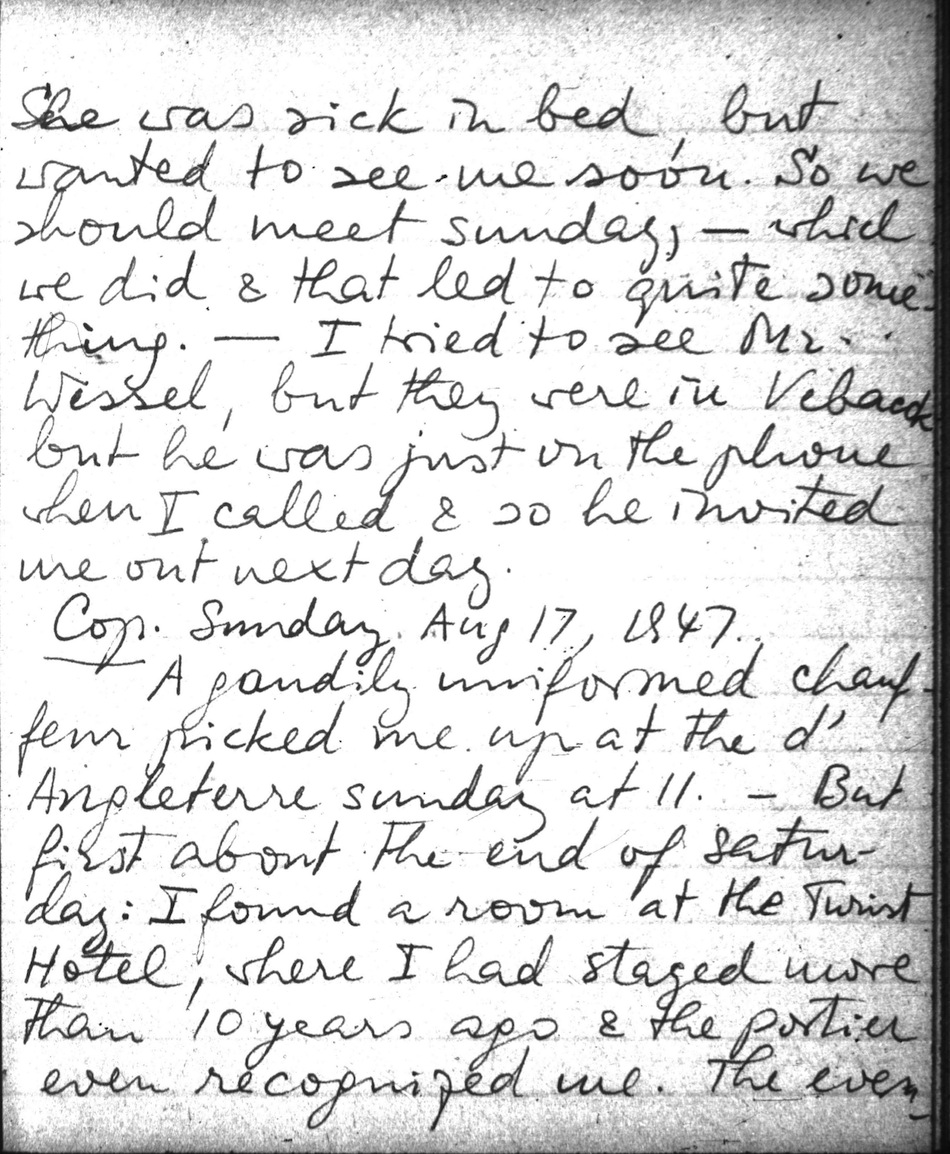 She was sick in bed, but
wanted to see me soon. So we
should meet sunday, — which
we did & that led to quite some-
thing. — I tried to see Mr.
Wessel, but they were in Vebaeck
but he was just on the phone
when I called & so he invited
me out next day.
Cop. Sunday. Aug 17, 1947.
A gaudily uniformed chauf-
feur picked me up at the d'
Angleterre sunday at 11. – But
first about the end of satur-
day: I found a room at the Turist
Hotel, where I had stayed more
than 10 years ago & the portier
even recognized me. The even-